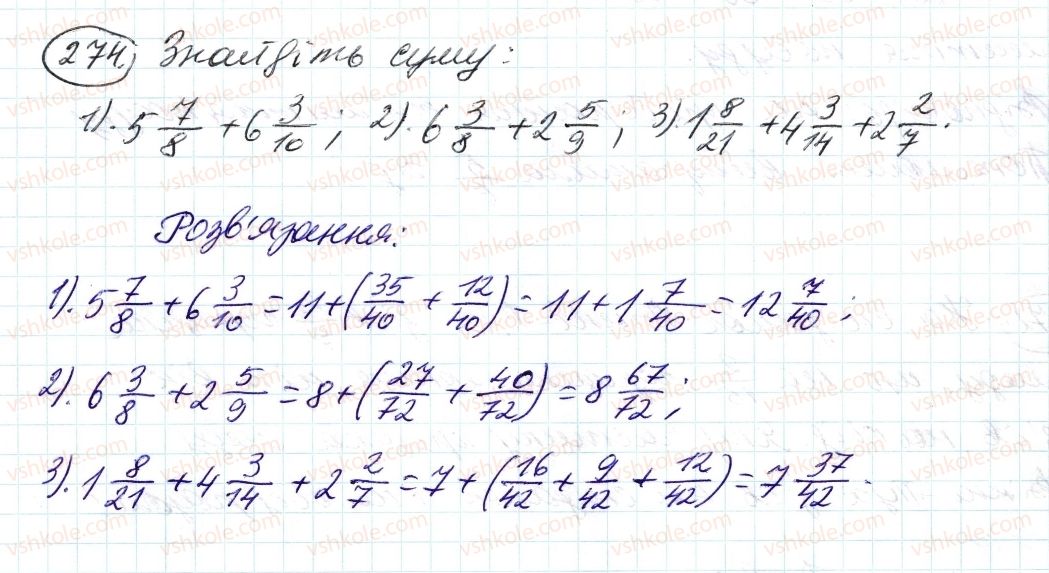 274. Знайдіть суму:
1). 5 7/8 + 6 3/10; 2). 6 3/8 + 2 5/9; 3). 1 8/21 + 4 3/14 + 2 2/7.
Розв'язання:
1). 5 7/8 + 6 3/10 = 11 + (35/40 + 12/40) = 11 + 1 7/40 = 12 7/40;
2). 6 3/8 + 2 5/9 = 8 + (27/72 + 40/72) = 8 67/72;
3). 1 8/21 + 4 3/14 + 2 2/7 = 7 + (16/42 + 9/42 + 12/42) = 7 37/42.